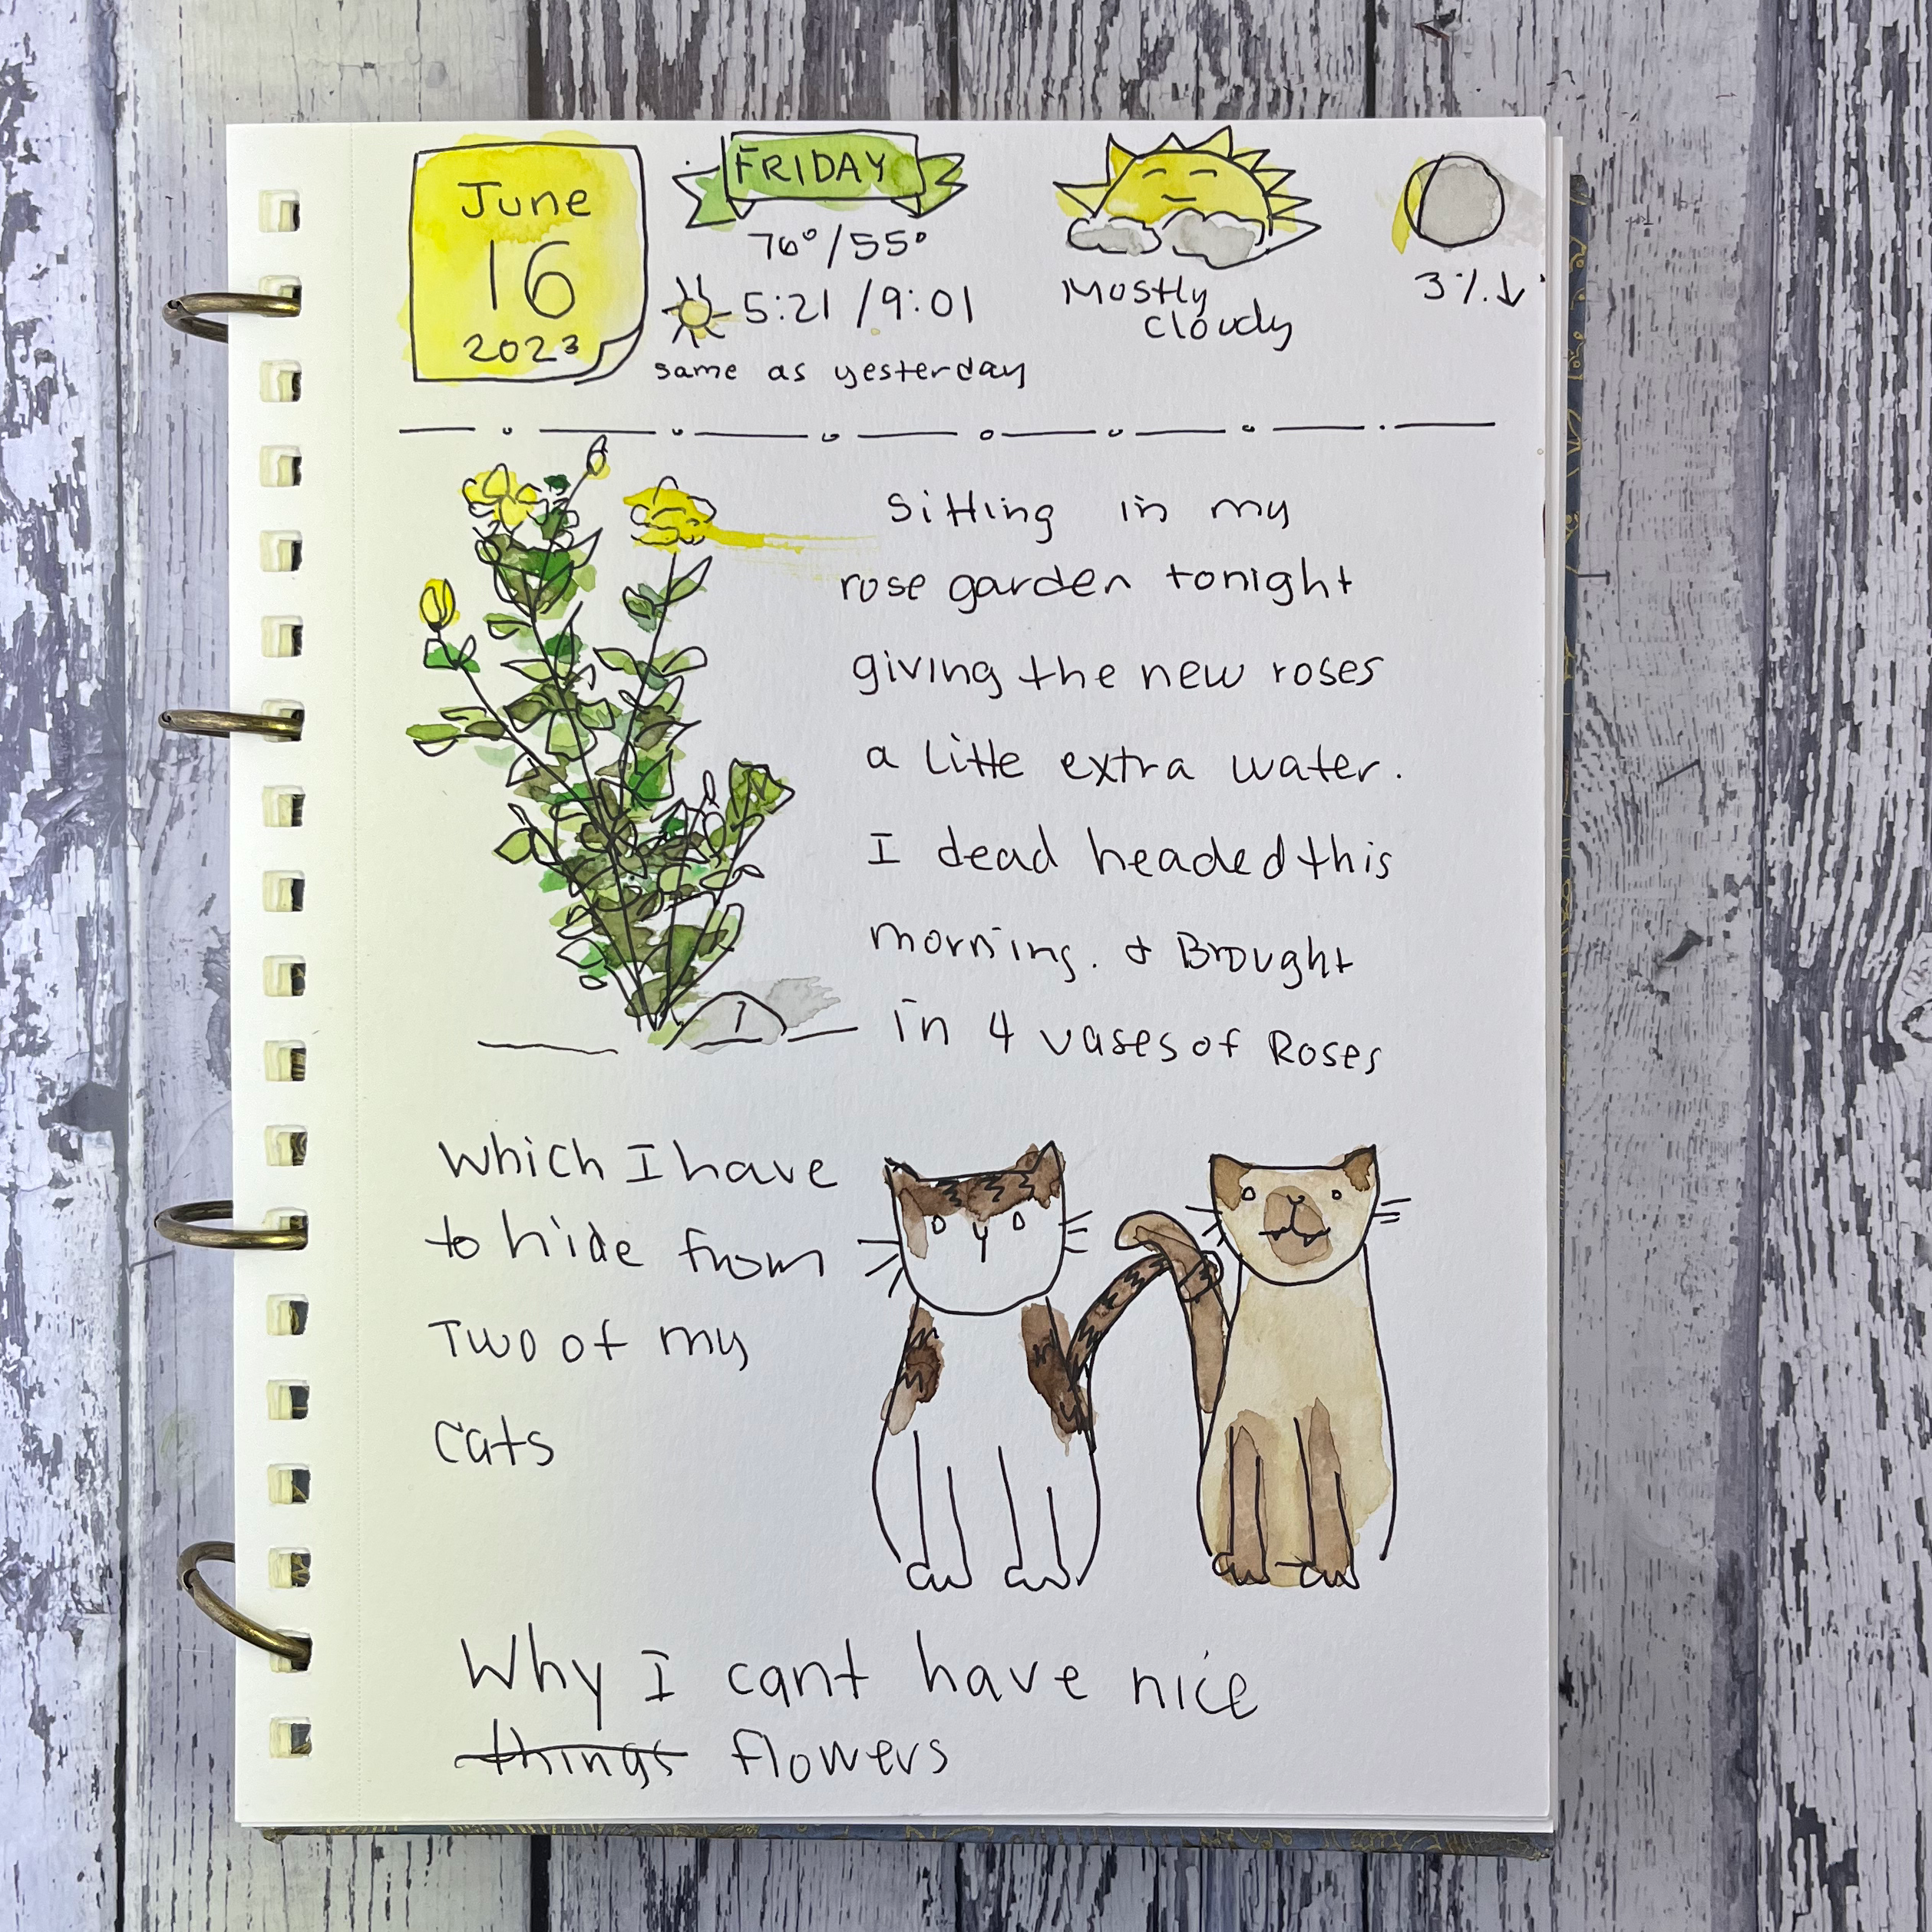 June
16
2023
FRIDAY
76°/55°
5:21 / 9:01
same as yesterday
Mostly
cloudy
3%↓
Sitting in my
rose garden tonight
giving the new roses
a little extra water.
I dead headed this
morning. & Brought
in 4 vases of Roses
Which I have
to hide from
Two of my
cats
Why I cant have nice
things flowers